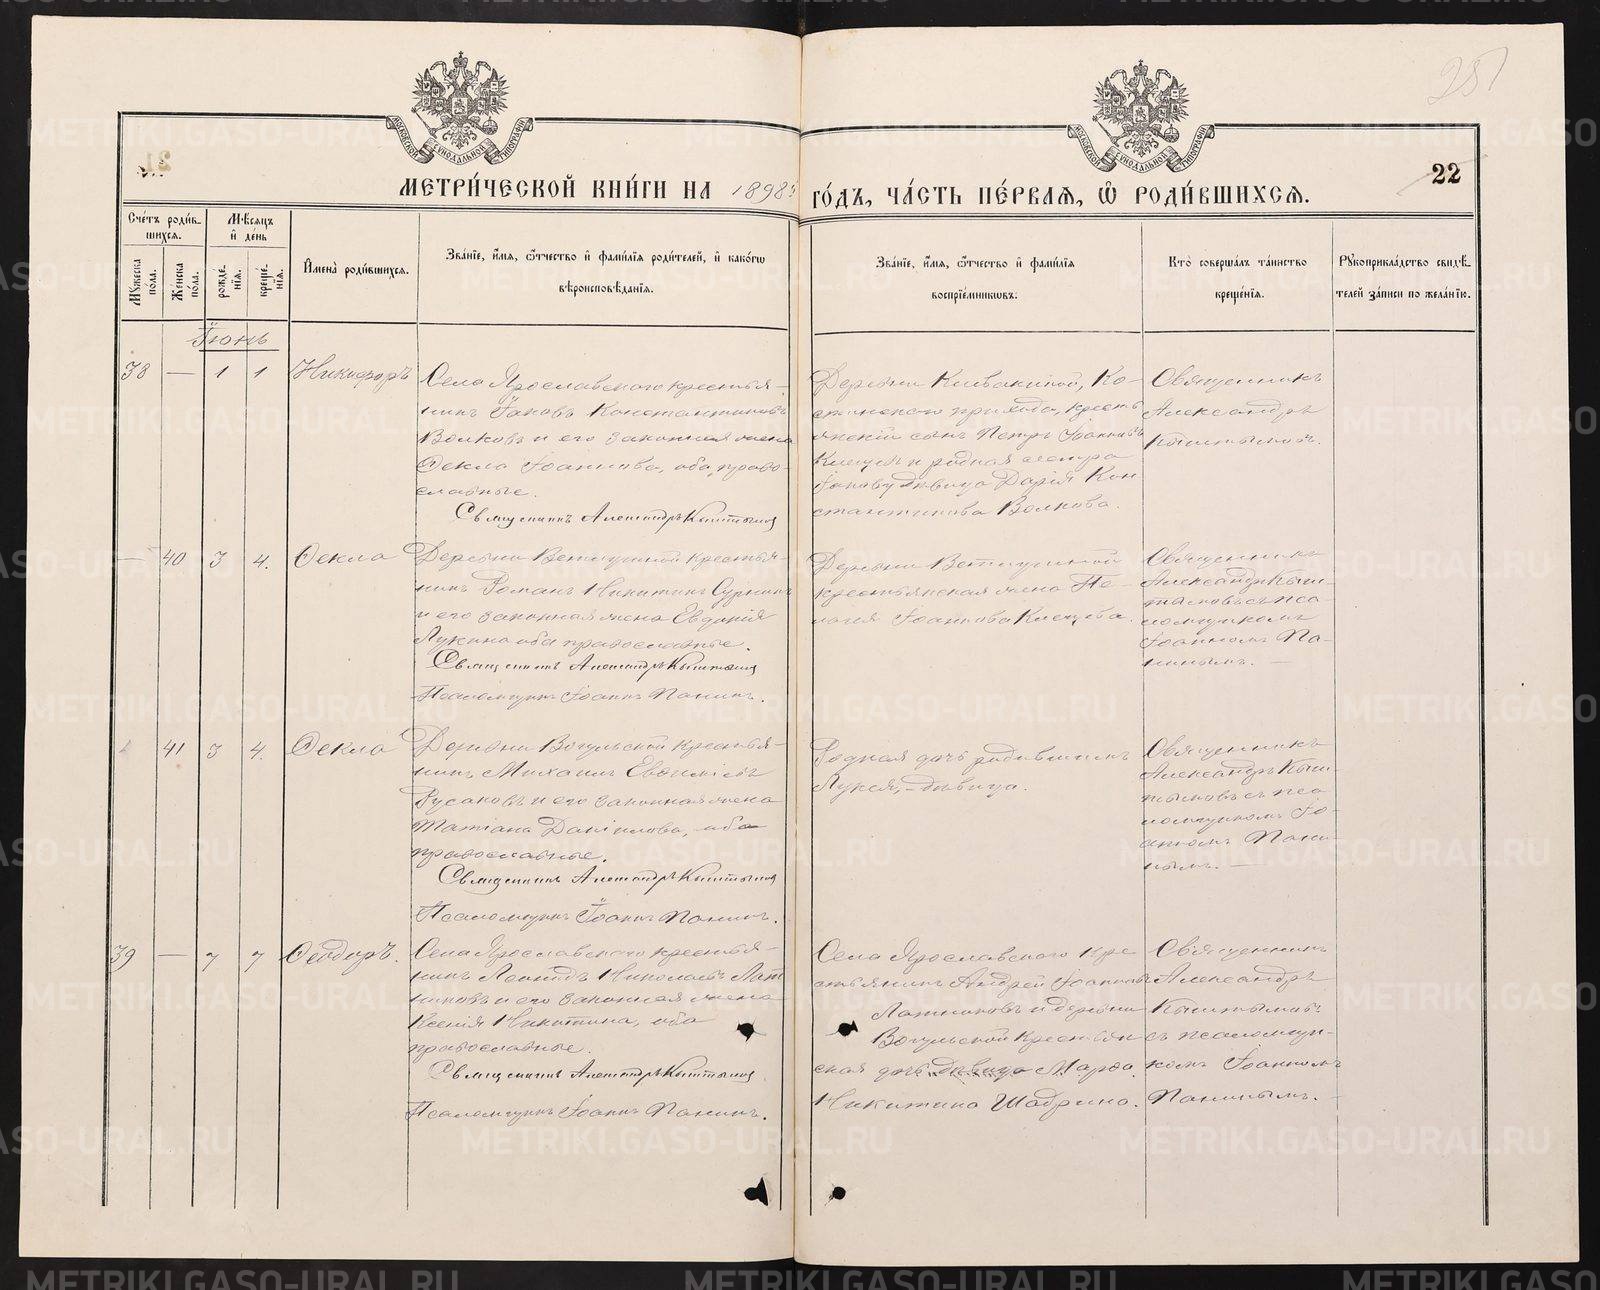 251
22
МЕТРИ́ЧЕСКОЙ КНИ́ГИ НА 1898й ГО́ДЪ, ЧА́СТЬ ПЕ́РВАѦ, Ѿ РОДИ́ВШИХСѦ.
Сче́тъ роди́в-
шихсѧ.
Мꙋ́жеска по́ла.
Же́нска по́ла.
Мѣ́сѧцъ и҆ де́нь
рожде́-
нїѧ.
креще́-
нїѧ.
И҆мена̀ роди́вшихсѧ.
Зва́нїе, и҆́мѧ, ѻ҆́тчество и҆ фами́лїѧ роди́телей, и҆ како́гѡ
вѣроисповѣ́данїѧ.
Зва́нїе, и҆́мѧ, ѻ҆́тчество и҆ фами́лїѧ
воспрїе́мникѡвъ.
Кто̀ соверша́лъ та́инство
креще́нїѧ.
Рꙋкоприкла́дство свидѣ́-
телей за́писи по жела́нїю.
Іюнь
38 — 1 1 Никифоръ
Села Ярославскаго крестья-
нинъ Іаковъ Константиновъ
Волковъ и его законная жена
Ѳекла Іоаннова, оба право-
славные.
Священникъ Александръ Кыштымовъ
Деревни Кивакиной, Ко-
прихода, кресть-
янскій сынъ Петръ Іоанновъ
Клещевъ и родная сестра
Іакову дѣвица Дарія Кон-
стантинова Волкова.
Священникъ
Александръ
Кыштымовъ.
— 40 3 4. Ѳекла
Деревни крестья-
нинъ Романъ Никитинъ
и его законная жена Евдокія
Лукина оба православные.
Священникъ Александръ Кыштымовъ
Псаломщикъ Іоаннъ Панинъ.
Деревни
крестьянская жена Пе-
лагія Іоаннова Клещева.
Священникъ
Александръ Кыш-
тымовъ съ пса-
ломщикомъ
Іоанномъ Па-
нинымъ. —
41 3 4. Ѳекла
Деревни Вогульской крестья-
нинъ Михаилъ Евѳиміевъ
Русаковъ и его законная жена
Татіана Даніилова, оба
православные.
Священникъ Александръ Кыштымовъ
Псаломщикъ Іоаннъ Панинъ.
Родная дочь родившимъ
Лукія, дѣвица.
Священникъ
Александръ Кыш-
тымовъ съ пса-
ломщикомъ Іо-
анномъ Пани-
нымъ. —
39 — 7 7 Ѳеодоръ.
Села Ярославскаго крестья-
нинъ Леонидъ Николаевъ Лат-
никовъ и его законная жена
Ксенія Никитина, оба
православные.
Священникъ Александръ Кыштымовъ
Псаломщикъ Іоаннъ Панинъ.
Села Ярославскаго кре-
стьянинъ Андрей Іоанновъ
Латниковъ и деревни
Вогульской крестьян-
ская дочь дѣвица Марѳа
Никитина Шадрина.
Священникъ
Александръ
Кыштымовъ
съ псаломщи-
комъ Іоанномъ
Панинымъ. —
METRIKI.GASO-URAL.RU